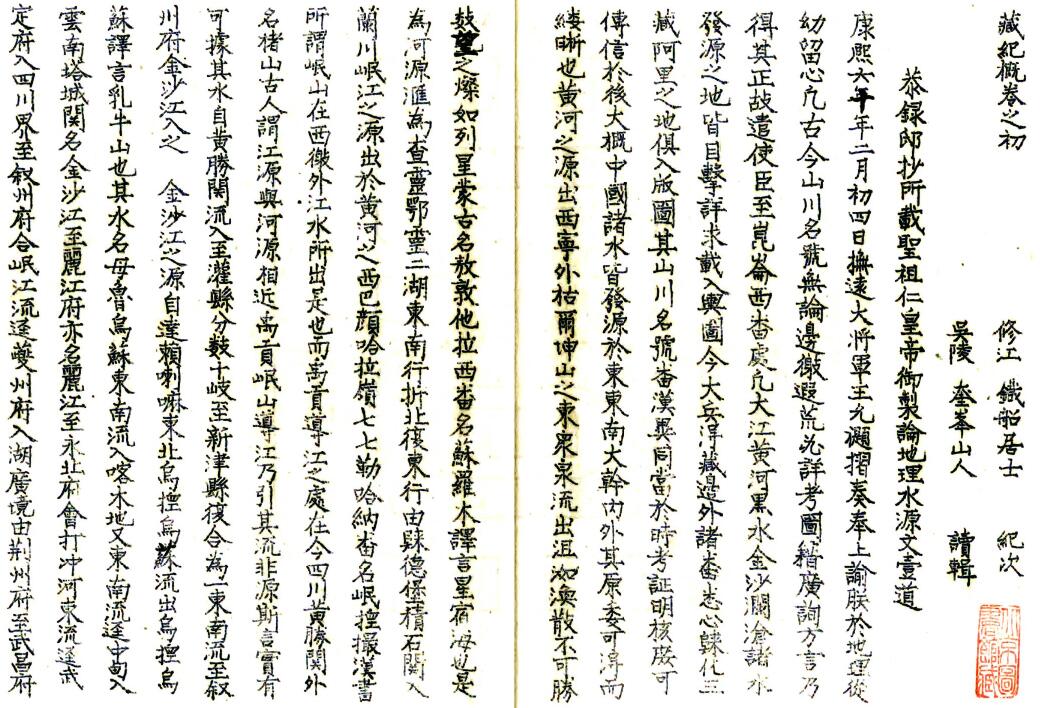 藏紀概卷之初
修江 鐵船居士 紀次
吳陵 奎峯山人 讀輯
恭錄邸抄所載聖祖仁皇帝御製論地理水源文壹道
康熙六年年二月初四日撫遠大將軍王允禵摺奏奉上諭朕於地理從
幼留心凡古今山川名號無論邊徼遐荒必詳考圖籍廣詢方言乃
得其正故遣使臣至崑崙西畨處凡大江黃河黑水金沙瀾滄諸水
發源之地皆目擊詳求載入輿圖今大兵淂藏邉外諸畨悉心歸化三
藏阿里之地俱入版圖其山川名號畨漢異同當於時考証明核庻可
傳信於後大概中國諸水皆發源於東東南大幹內外其原委可淂而
縷晰也黃河之源出西寧外枯爾坤山之東衆泉流出沮洳渙散不可勝
数望之燦如列星蒙古名敖敦他拉西畨名蘇羅木譯言星宿海也是
為河源滙為查靈鄂靈二湖東南行折北復東行由歸德堡積石関入
蘭川岷江之源出於黃河之西巴顏哈拉嶺七七勒哈納畨名岷捏撮漢書
所謂岷山在西徼外江水所出是也而禹貢導江之處在今四川黃勝関外
名楮山古人謂江源與河源相近禹貢岷山導江乃引其流非原斯言實有
可據其水自黃勝関流入至灌縣分数十岐至新津縣復合為一東南流至叙
川府金沙江入之 金沙江之源自達賴喇嘛東北烏捏烏蘇流出烏捏烏
蘇譯言乳牛山也其水名母魯烏蘇東南流入喀木地又東南流逕中甸入
雲南塔城関名金沙江至麗江府亦名麗江至永北府會打冲河東流逕武
定府入四川界至叙州府合岷江流逕夔州府入湖廣境由荆州府至武昌府